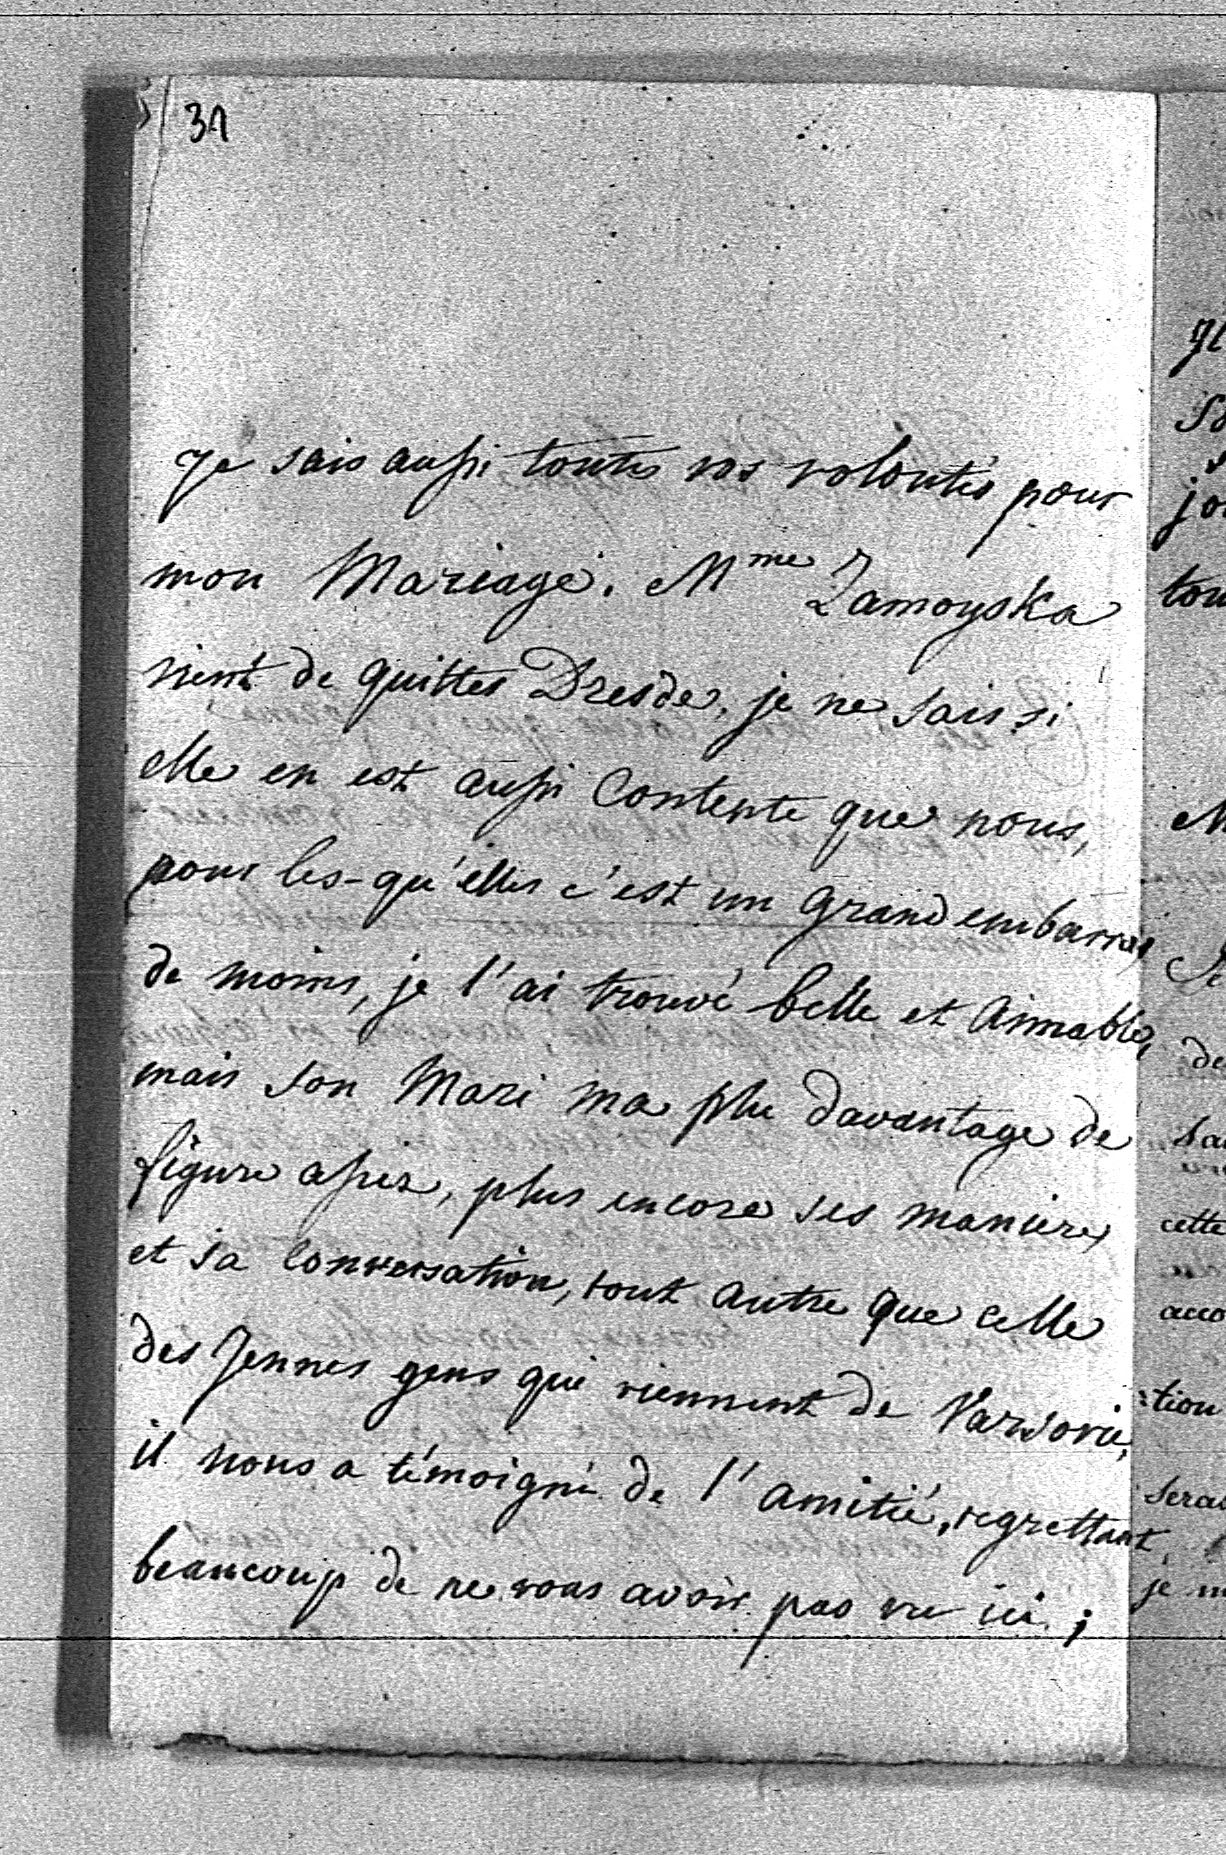 31
Je sais aussi toutes vos volontés pour
mon Mariage. Mme Zamoyska
vient de quitter Dresde, je ne sais si
elle en est aussi Contente que nous,
pour les-qu'elles c'est un grand embarras
de moins, je l'ai trouvé belle et Aimable,
mais son Mari ma plu davantage de
figure assez, plus encore ses manieres
et sa Conversation, tout autre que celle
des Jeunes gens qui viennent de Varsovie,
il nous a témoigné de l'amitié, regrettant
beaucoup de ne vous avoir pas vu ici;
tou
cette
acco
tion
serai
je m